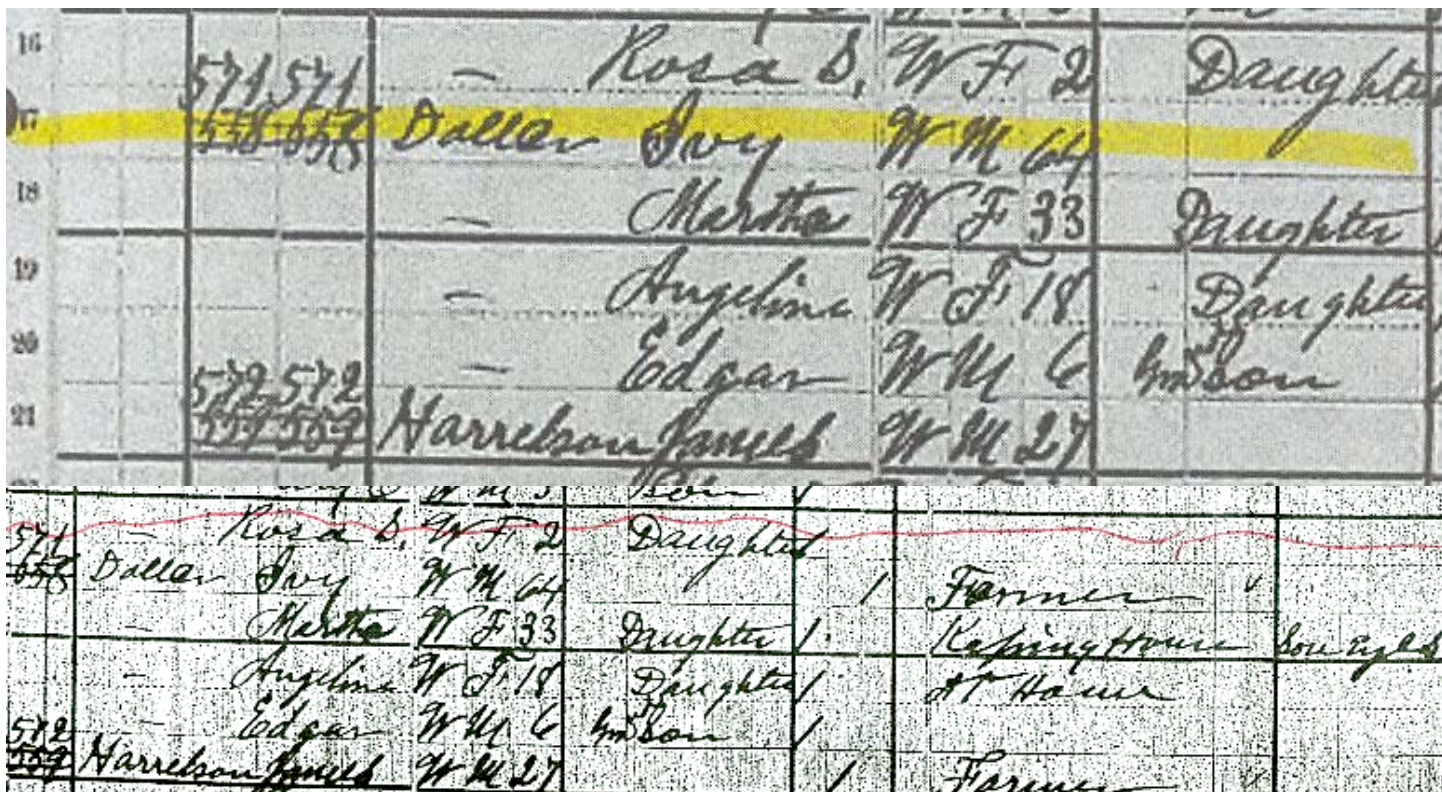 16 — Rosa S. W F 2 Daughter
571 571
17 558 558 Doller Ivy W M 64
18 — Martha W F 33 Daughter
19 — Angelina W F 18 Daughter
20 — Edgar W M 6 Gm Son
572 572
21 559 559 Harrelson James W M 27
W M Son 1
571 — Rosa S. W F 2 Daughter
558 Doller Ivy W M 64 1 Farmer
— Martha W F 33 Daughter 1 Keeping House
— Angelina W F 18 Daughter 1 At Home
572 — Edgar W M 6 Gm Son 1
559 Harrelson James W M 27 1 Farmer